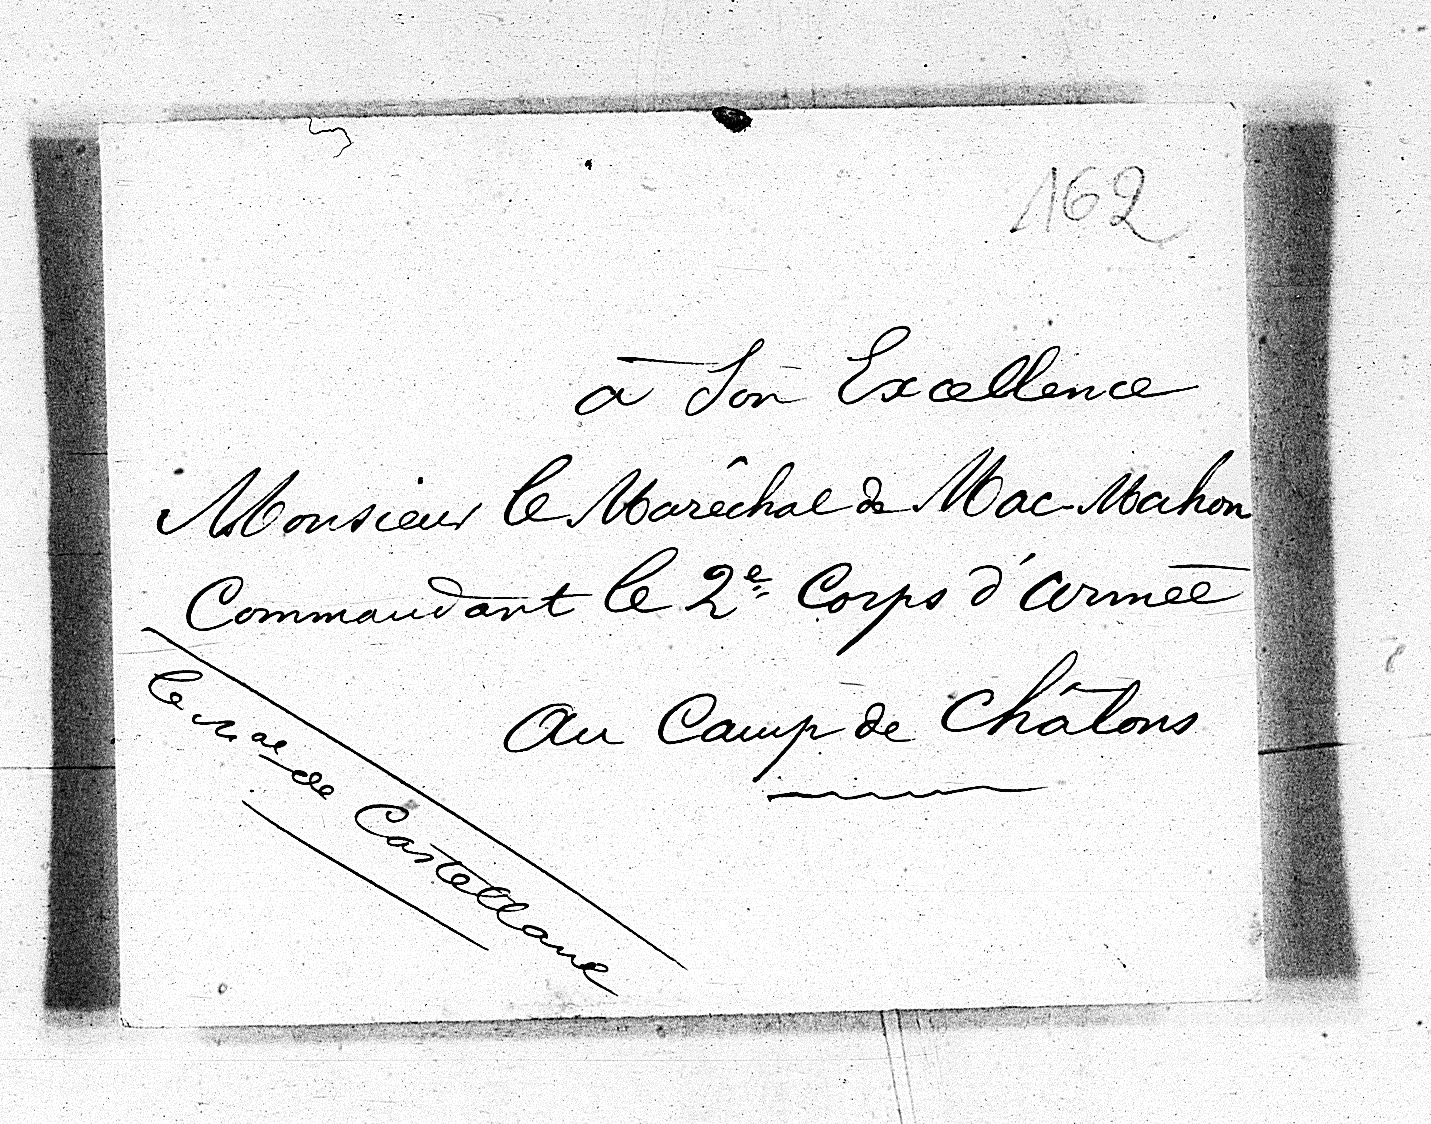 162
à Son Excellence
Monsieur le Maréchal de Mac-Mahon
Commandant le 2e Corps d'armée
au Camp de Châlons
le Mal de Castellane